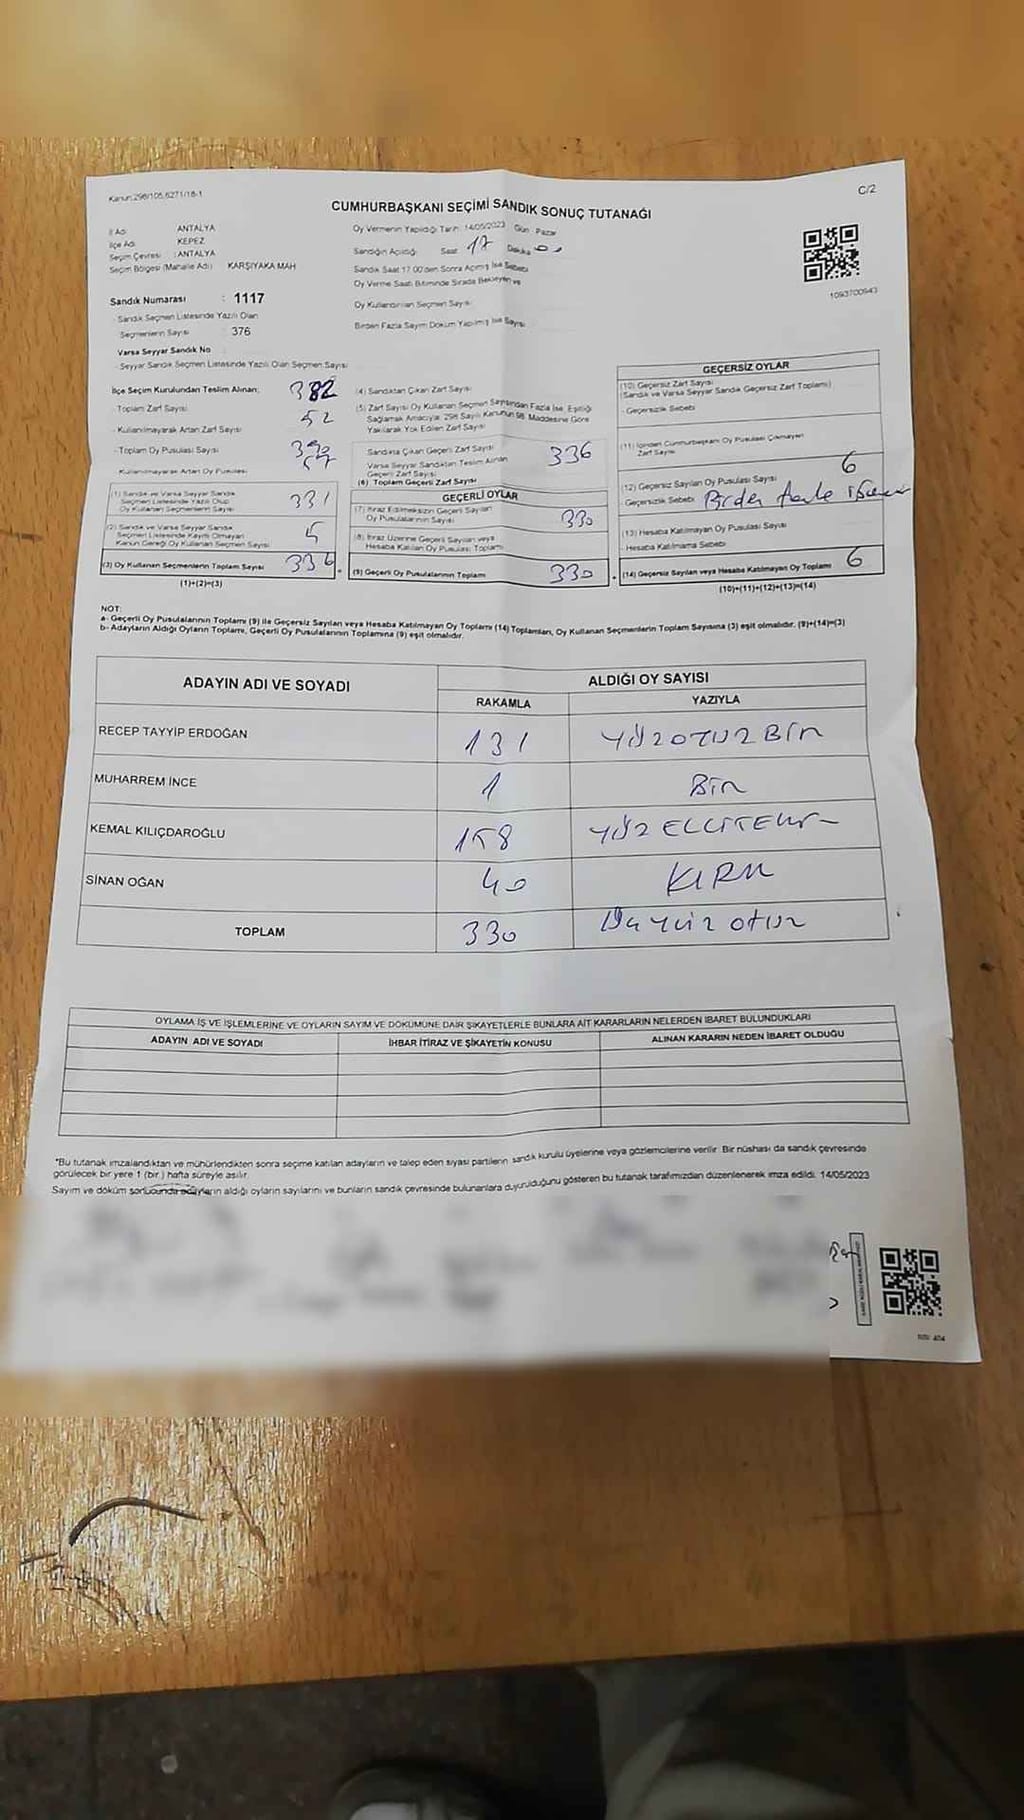 Kanun:298/105,6271/18-1
C/2
CUMHURBAŞKANI SEÇİMİ SANDIK SONUÇ TUTANAĞI
İl Adı ANTALYA
İlçe Adı KEPEZ
Seçim Çevresi : ANTALYA
Seçim Bölgesi (Mahalle Adı) KARŞIYAKA MAH
Oy Vermenin Yapıldığı Tarih: 14/05/2023 Gün Pazar
Sandığın Açıldığı Saat 17 Dakika 00
Sandık Saat 17.00'den Sonra Açılmış İse Sebebi
Oy Verme Saati Bitiminde Sırada Bekleyen ve
Oy Kullandırılan Seçmen Sayısı
Birden Fazla Sayım Döküm Yapılmış İse Sayısı
1093700943
Sandık Numarası : 1117
Sandık Seçmen Listesinde Yazılı Olan
Seçmenlerin Sayısı : 376
Varsa Seyyar Sandık No
Seyyar Sandık Seçmen Listesinde Yazılı Olan Seçmen Sayısı
İlçe Seçim Kurulundan Teslim Alınan;
- Toplam Zarf Sayısı 382
- Kullanılmayarak Artan Zarf Sayısı 52
- Toplam Oy Pusulası Sayısı
Kullanılmayarak Artan Oy Pusulası
(1) Sandık ve Varsa Seyyar Sandık
Seçmen Listesinde Yazılı Olup
Oy Kullanan Seçmenlerin Sayısı 331
(2) Sandık ve Varsa Seyyar Sandık
Seçmen Listesinde Kayıtlı Olmayan
Kanun Gereği Oy Kullanan Seçmen Sayısı 5
(3) Oy Kullanan Seçmenlerin Toplam Sayısı 336
(1)+(2)=(3)
(4) Sandıktan Çıkan Zarf Sayısı
(5) Zarf Sayısı Oy Kullanan Seçmen Sayısından Fazla İse, Eşitliği
Sağlamak Amacıyla, 298 Sayılı Kanunun 98. Maddesine Göre
Yakılarak Yok Edilen Zarf Sayısı
Sandıkta Çıkan Geçerli Zarf Sayısı 336
Varsa Seyyar Sandıktan Teslim Alınan
Geçerli Zarf Sayısı
(6) Toplam Geçerli Zarf Sayısı
GEÇERLİ OYLAR
(7) İtiraz Edilmeksizin Geçerli Sayılan
Oy Pusulalarının Sayısı 330
(8) İtiraz Üzerine Geçerli Sayılan veya
Hesaba Katılan Oy Pusulası Toplamı
(9) Geçerli Oy Pusulalarının Toplamı 330
GEÇERSİZ OYLAR
(10) Geçersiz Zarf Sayısı
(Sandık ve Varsa Seyyar Sandık Geçersiz Zarf Toplamı)
- Geçersizlik Sebebi
(11) İçinden Cumhurbaşkanı Oy Pusulası Çıkmayan
Zarf Sayısı
(12) Geçersiz Sayılan Oy Pusulası Sayısı 6
Geçersizlik Sebebi Birden fazla
(13) Hesaba Katılmayan Oy Pusulası Sayısı
- Hesaba Katılmama Sebebi
(14) Geçersiz Sayılan veya Hesaba Katılmayan Oy Toplamı 6
(10)+(11)+(12)+(13)=(14)
NOT:
a- Geçerli Oy Pusulalarının Toplamı (9) ile Geçersiz Sayılan veya Hesaba Katılmayan Oy Toplamı (14) Toplamları, Oy Kullanan Seçmenlerin Toplam Sayısına (3) eşit olmalıdır. (9)+(14)=(3)
b- Adayların Aldığı Oyların Toplamı, Geçerli Oy Pusulalarının Toplamına (9) eşit olmalıdır.
ADAYIN ADI VE SOYADI ALDIĞI OY SAYISI
RAKAMLA YAZIYLA
RECEP TAYYİP ERDOĞAN 131 YÜZOTUZ BİR
MUHARREM İNCE 1 BİR
KEMAL KILIÇDAROĞLU 158 YÜZ
SİNAN OĞAN 40 KIRK
TOPLAM 330 otuz
OYLAMA İŞ VE İŞLEMLERİNE VE OYLARIN SAYIM VE DÖKÜMÜNE DAİR ŞİKAYETLERLE BUNLARA AİT KARARLARIN NELERDEN İBARET BULUNDUKLARI
ADAYIN ADI VE SOYADI İHBAR İTİRAZ VE ŞİKAYETİN KONUSU ALINAN KARARIN NEDEN İBARET OLDUĞU
*Bu tutanak imzalandıktan ve mühürlendikten sonra seçime katılan adayların ve talep eden siyasi partilerin sandık kurulu üyelerine veya gözlemcilerine verilir. Bir nüshası da sandık çevresinde
görülecek bir yere 1 (bir) hafta süreyle asılır.
Sayım ve döküm sonucunda adayların aldığı oyların sayılarını ve bunların sandık çevresinde bulunanlara duyurulduğunu gösteren bu tutanak tarafımızdan düzenlenerek imza edildi. 14/05/2023